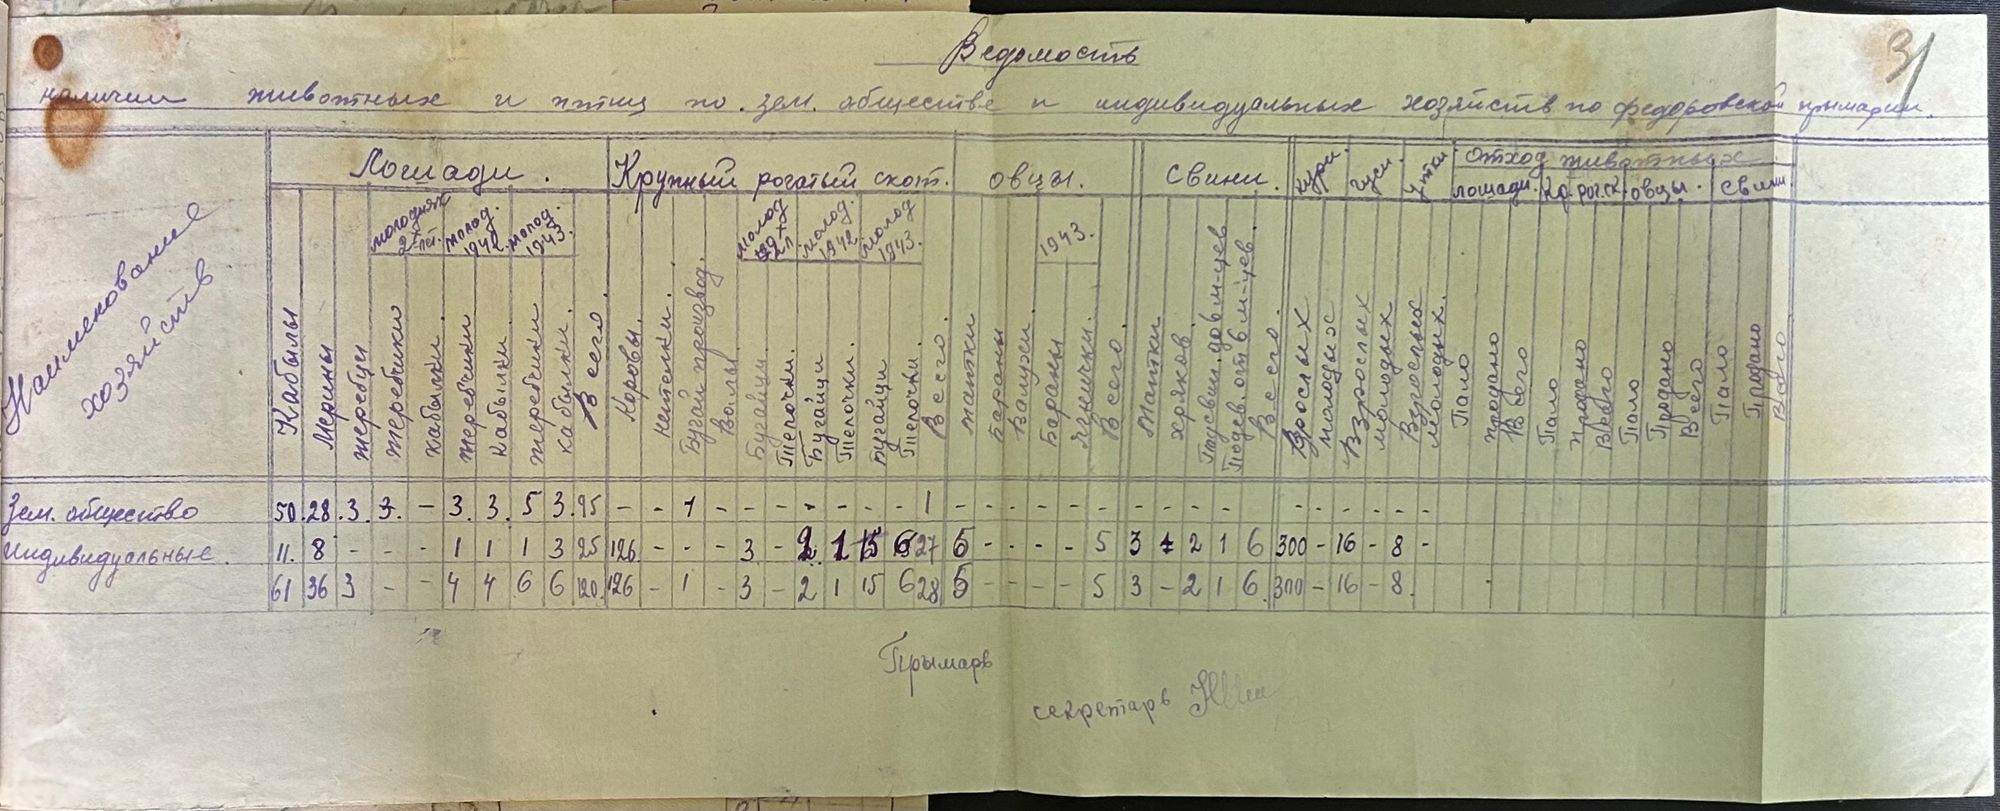 31
Ведомость
наличии животных и птиц по зем. обществе и индивидуальных хозяйств по федоровской прымарии.
Наименование хозяйств
Лошади. Крупный рогатый скот. овцы. Свини. куры. гуси. утки отход животных
лошади. кр. рог. ск. овцы. свини.
молодняк 2х лет. молод. 1942. молод. 1943. молод 2 л. молод. 1942. молод 1943. 1943.
Кабылы Мерины жеребцы жеребчики кабылки жеребчики кабылки жеребчики кабылки. Всего Коровы. нетелки. Бугаи производ. Волы. Бугайци Телочки. Бугайци Телочки. Бугайци Телочки. Всего. матки Бараны Валухи. Бараны Ягнички. Всего. Матки хряков. до 4 м-цев от 4 м-цев. Всего. Взрослых молодых Взрослых молодых Взрослых молодых. Пало продано Всего Пало продано Всего Пало Продано Всего Пало Продано Всего
Зем. общество 50. 28. 3. 3. - 3. 3. 5 3. 95 - - 1 - - - - - - - 1 - - - - - - - - - - - - - - - - -
Индивидуальные. 11. 8 - - - 1 1 1 3 25 126 - - - 3 - 2 1 15 6 27 5 - - - - 5 3 - 2 1 6 300 - 16 - 8 -
61 36 3 - - 4 4 6 6 120. 126 - 1 - 3 - 2 1 15 6 28 5 - - - - 5 3 - 2 1 6. 300 - 16 - 8.
Прымарь
секретарь